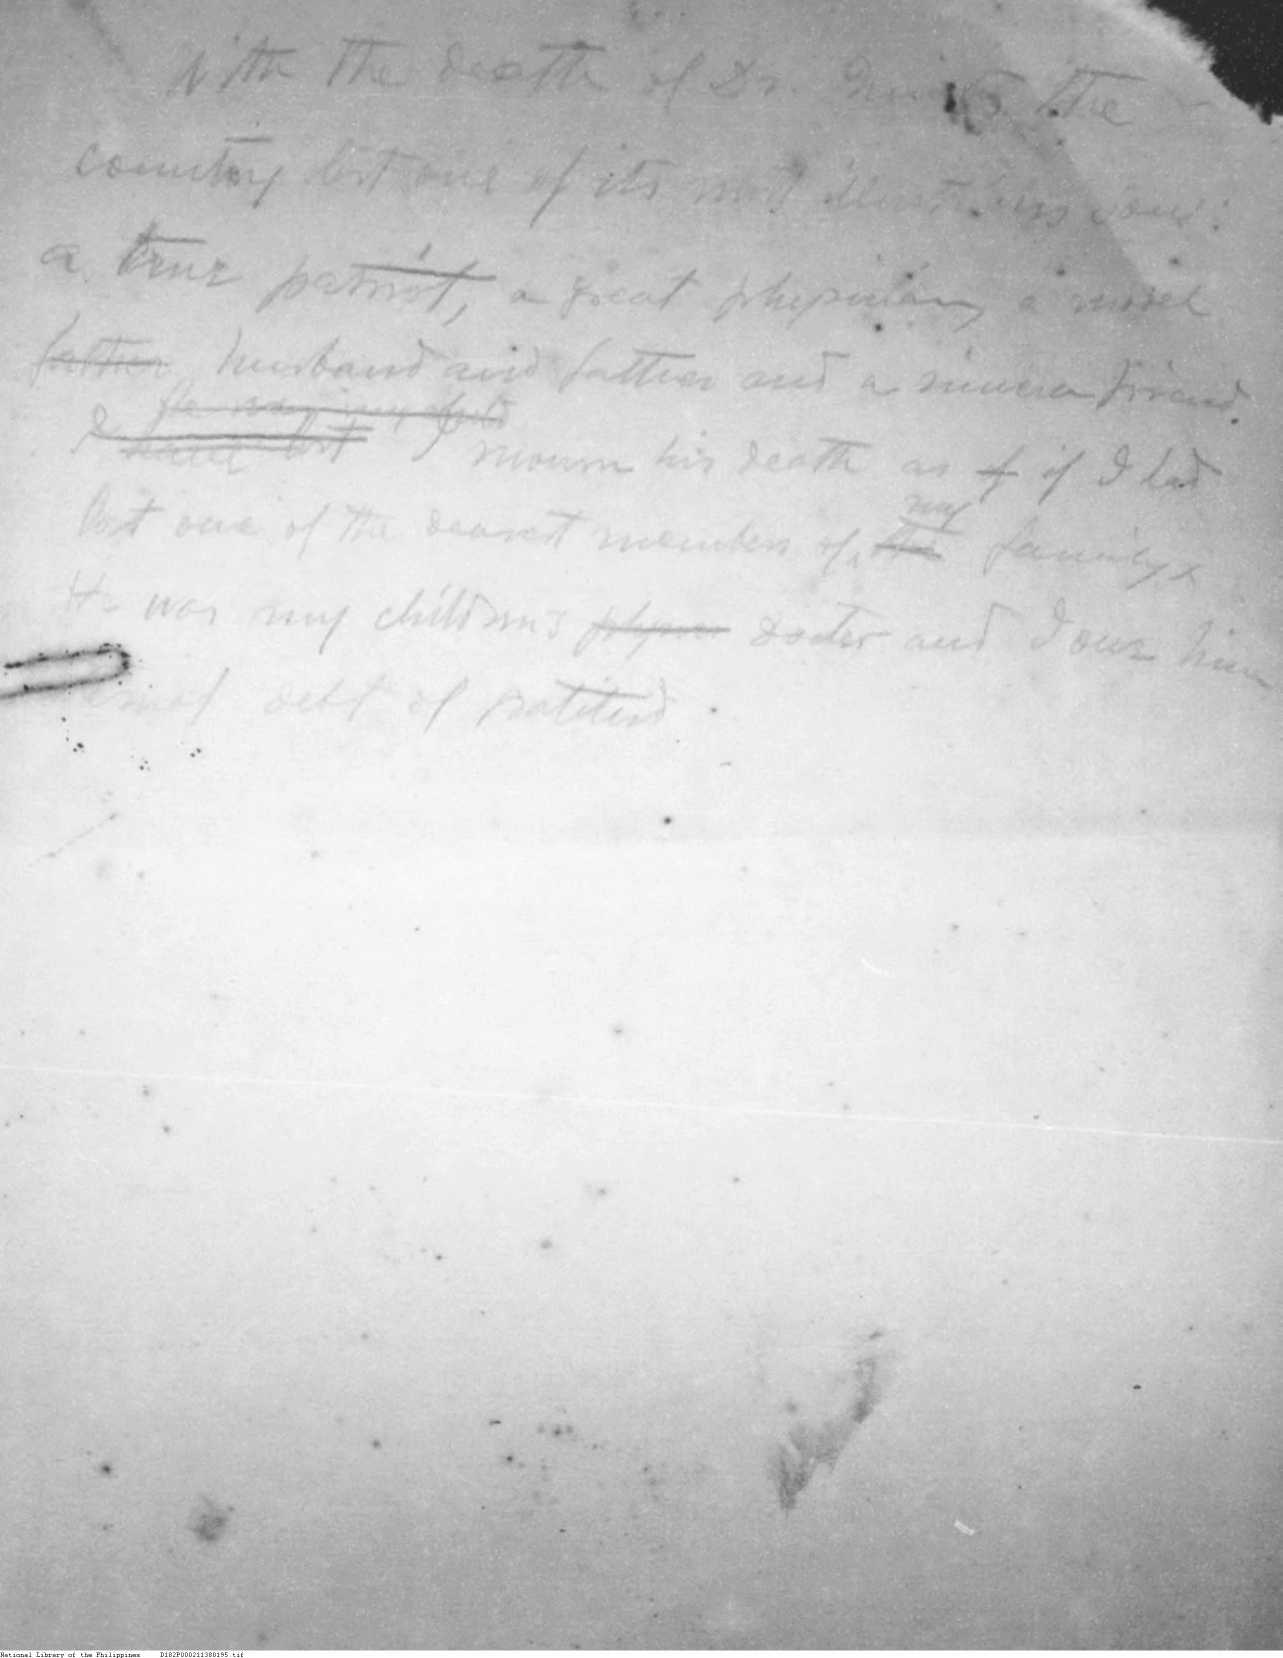 With the death of Dr. the
country lost one of its most illustrious sons:
a true patriot, a great physician, a model
father husband and father and a sincere friend.
I have lost mourn his death as f if I had
my
lost one of the dearest members of the family x
He was my children's physi doctor and I owe him
debt of gratitud
National Library of the Philippines D182P000211380195.tif